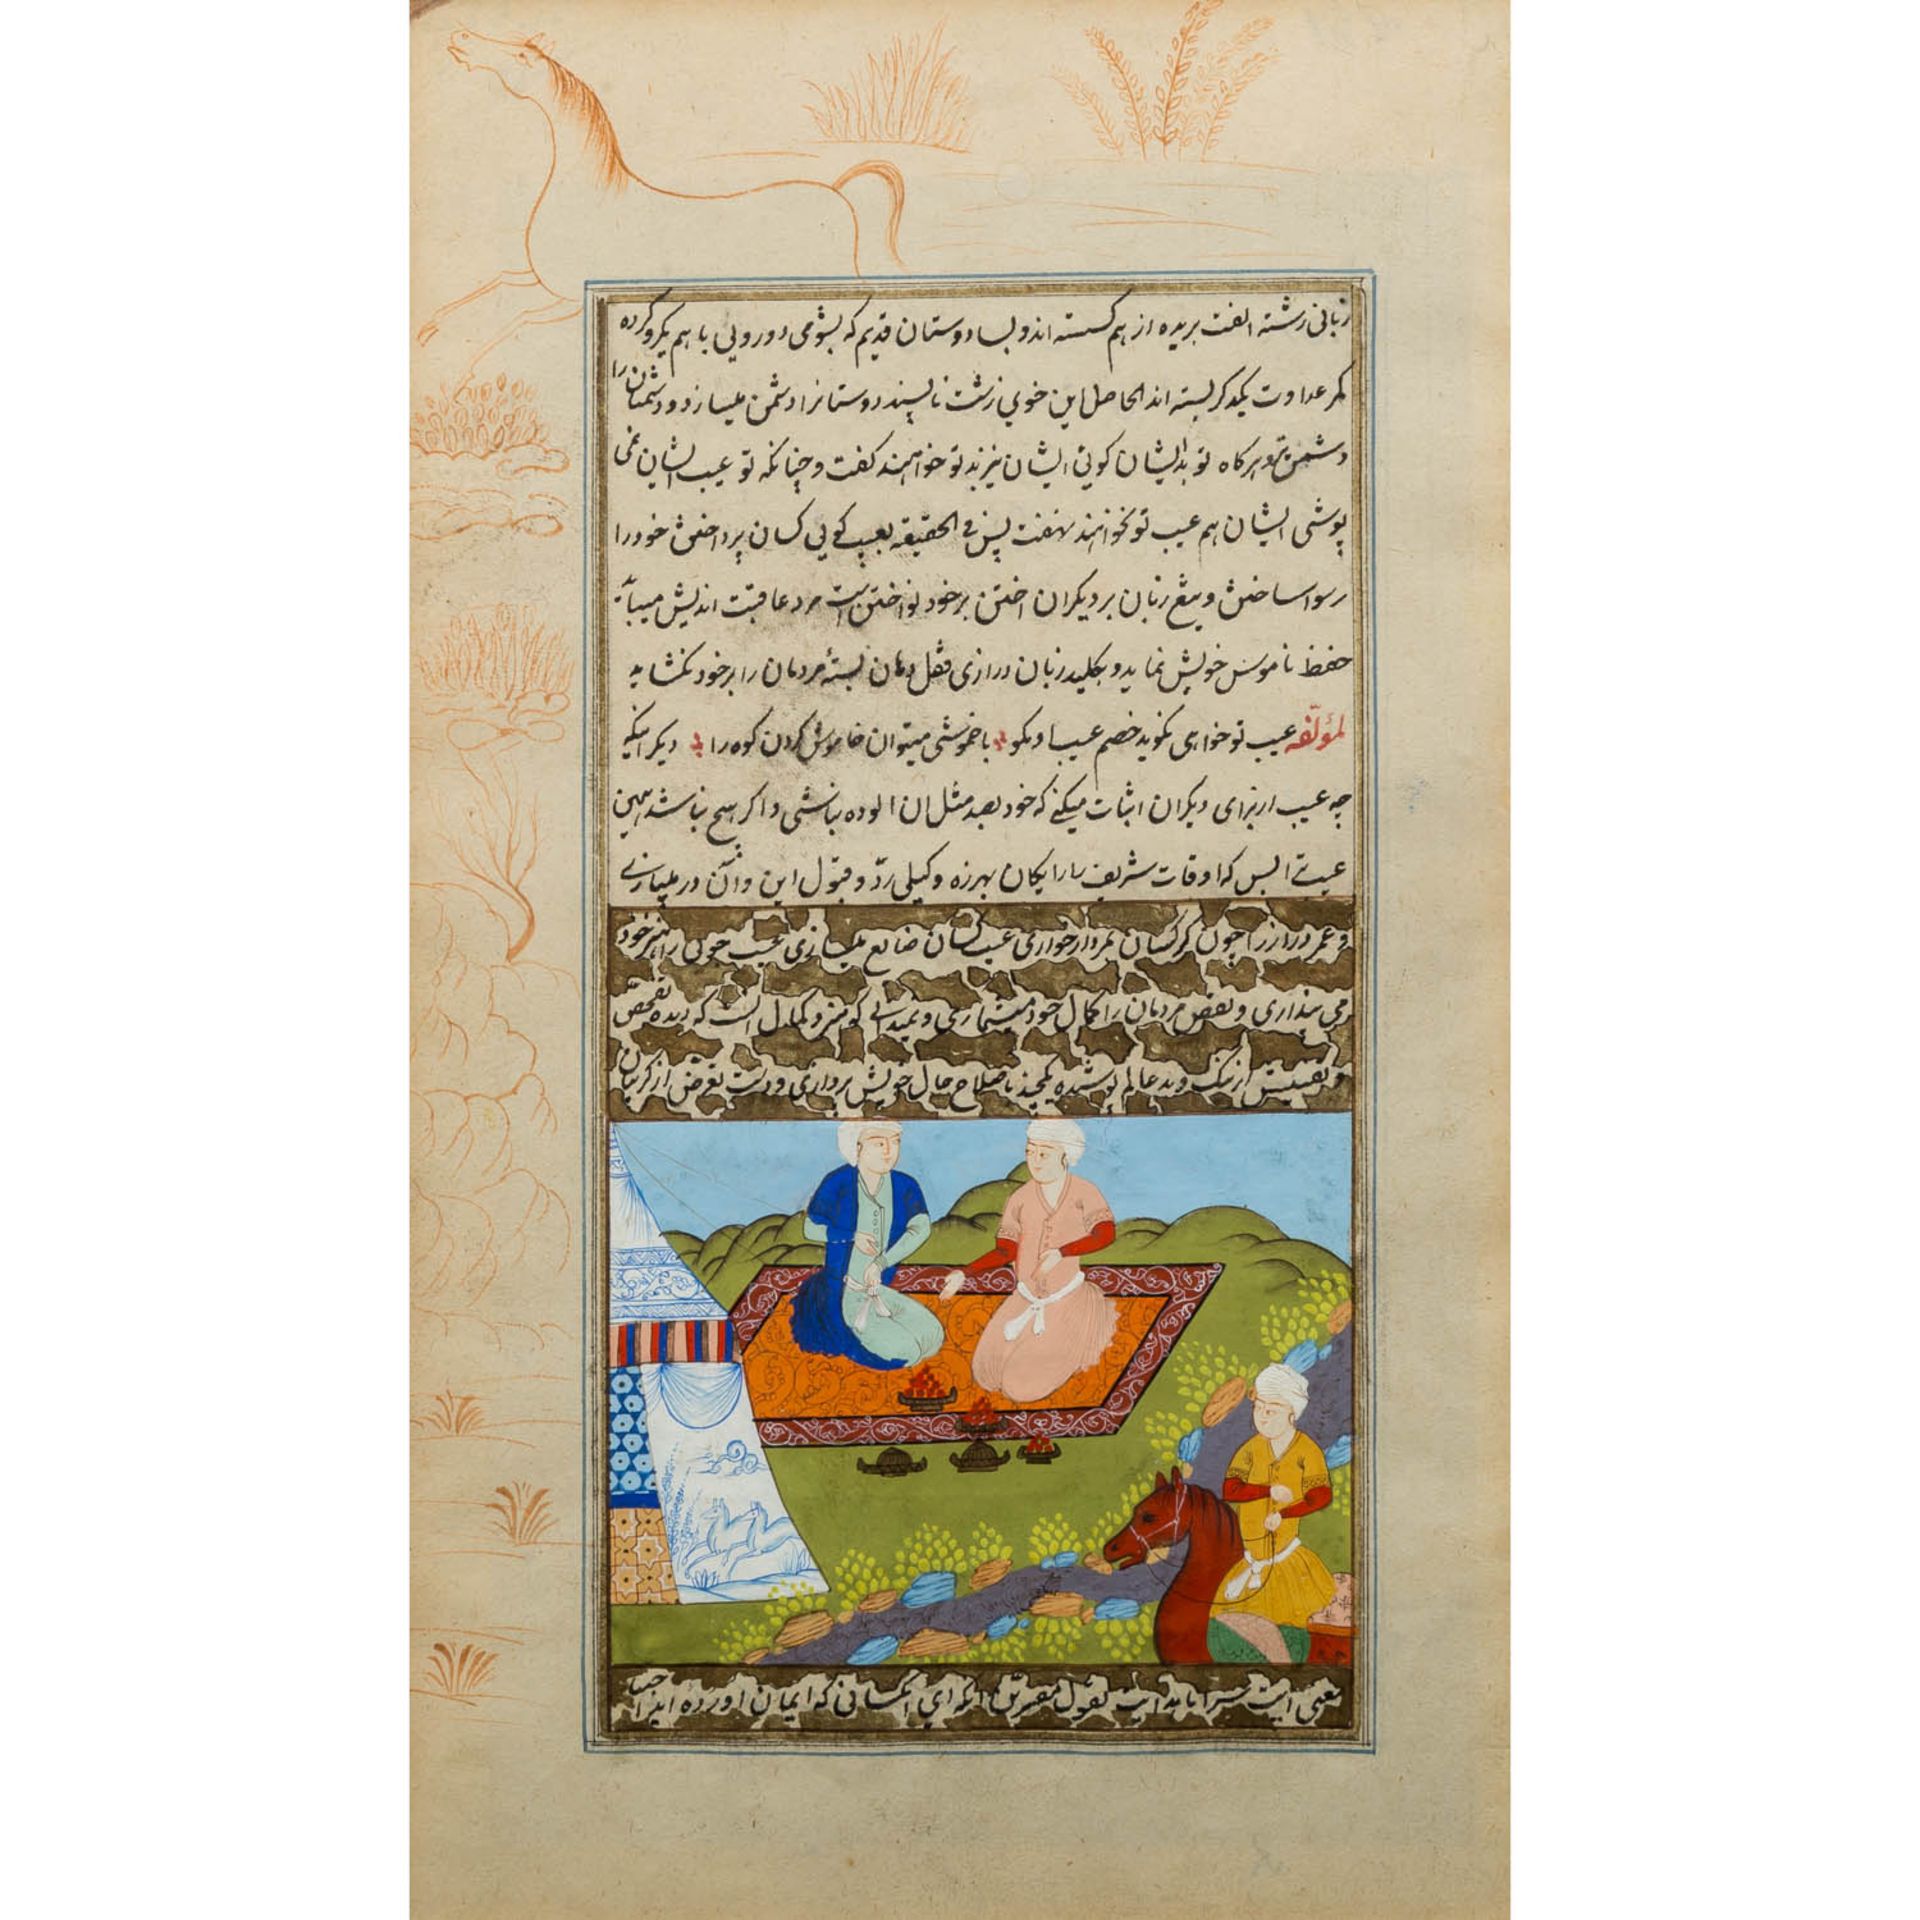 زبانی رشته الفت بریده از هم کسسته اند و بسا دوستان قدیم که بشومی دورویی با هم یکرو کرده
کمر عداوت یکدکر بسته اند الحاصل این خوی زشت ناپسند دوستانرا دشمن میسازد و دشمنان را
دشمن تر و هرکاه تو بد ایشان کوئی ایشان نیز بد تو خواهند کفت و چنانکه تو عیب ایشان نمی
پوشی ایشان هم عیب تو نخواهند نهفت پس فی الحقیقه بعیب کویی کسان پرداختن خود را
رسوا ساختن و تیغ زبان بر دیکران اختن بر خود نواختن است مرد عاقبت اندیش میباید
حفظ ناموس خویش نماید و بکلید زبان درازی قفل دهان بستهٔ مردمان را بر خود نکشاید
لمؤلّفه عیب تو خواهی نکوید خصم عیب او مکو با خموشی میتوان خاموش کردن کوه را دیکر اینکه
چه عیب از برای دیکران اثبات میکنی که خود بصد مثل ان الوده نباشی و اکر هیچ نباشد همین
عیبت بس که اوقات شریف را رایکان بهرزه وکیلی ردّ و قبول این و آن در میبازی
و عمر دراز را چون کرکسان بمردار خواری عیب کسان ضایع میسازی عیب جویی را هنر خود
می پنداری و نقص مردمان را کمال خود میشماری و نمیدانی که هنر و کمال انست که دیده تفحّص
و تفتیش از نیک و بد عالم پوشیده یکچند باصلاح حال خویش پردازی و دست تعرّض از کریبان
یعنی ایت بقول مفسرین انکه ای کسانی که ایمان اورده اید اجتناب